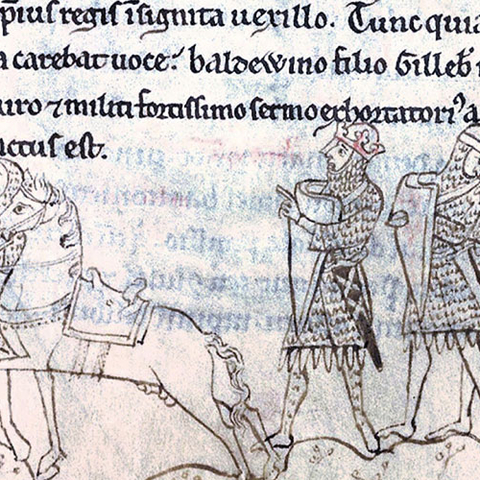 pius regis insignita uexillo. Tunc quia
a carebat uoce: baldewino filio Gilleb
uiro ⁊ militi fortissimo sermo exhortatoriꝰ a
ctus est.